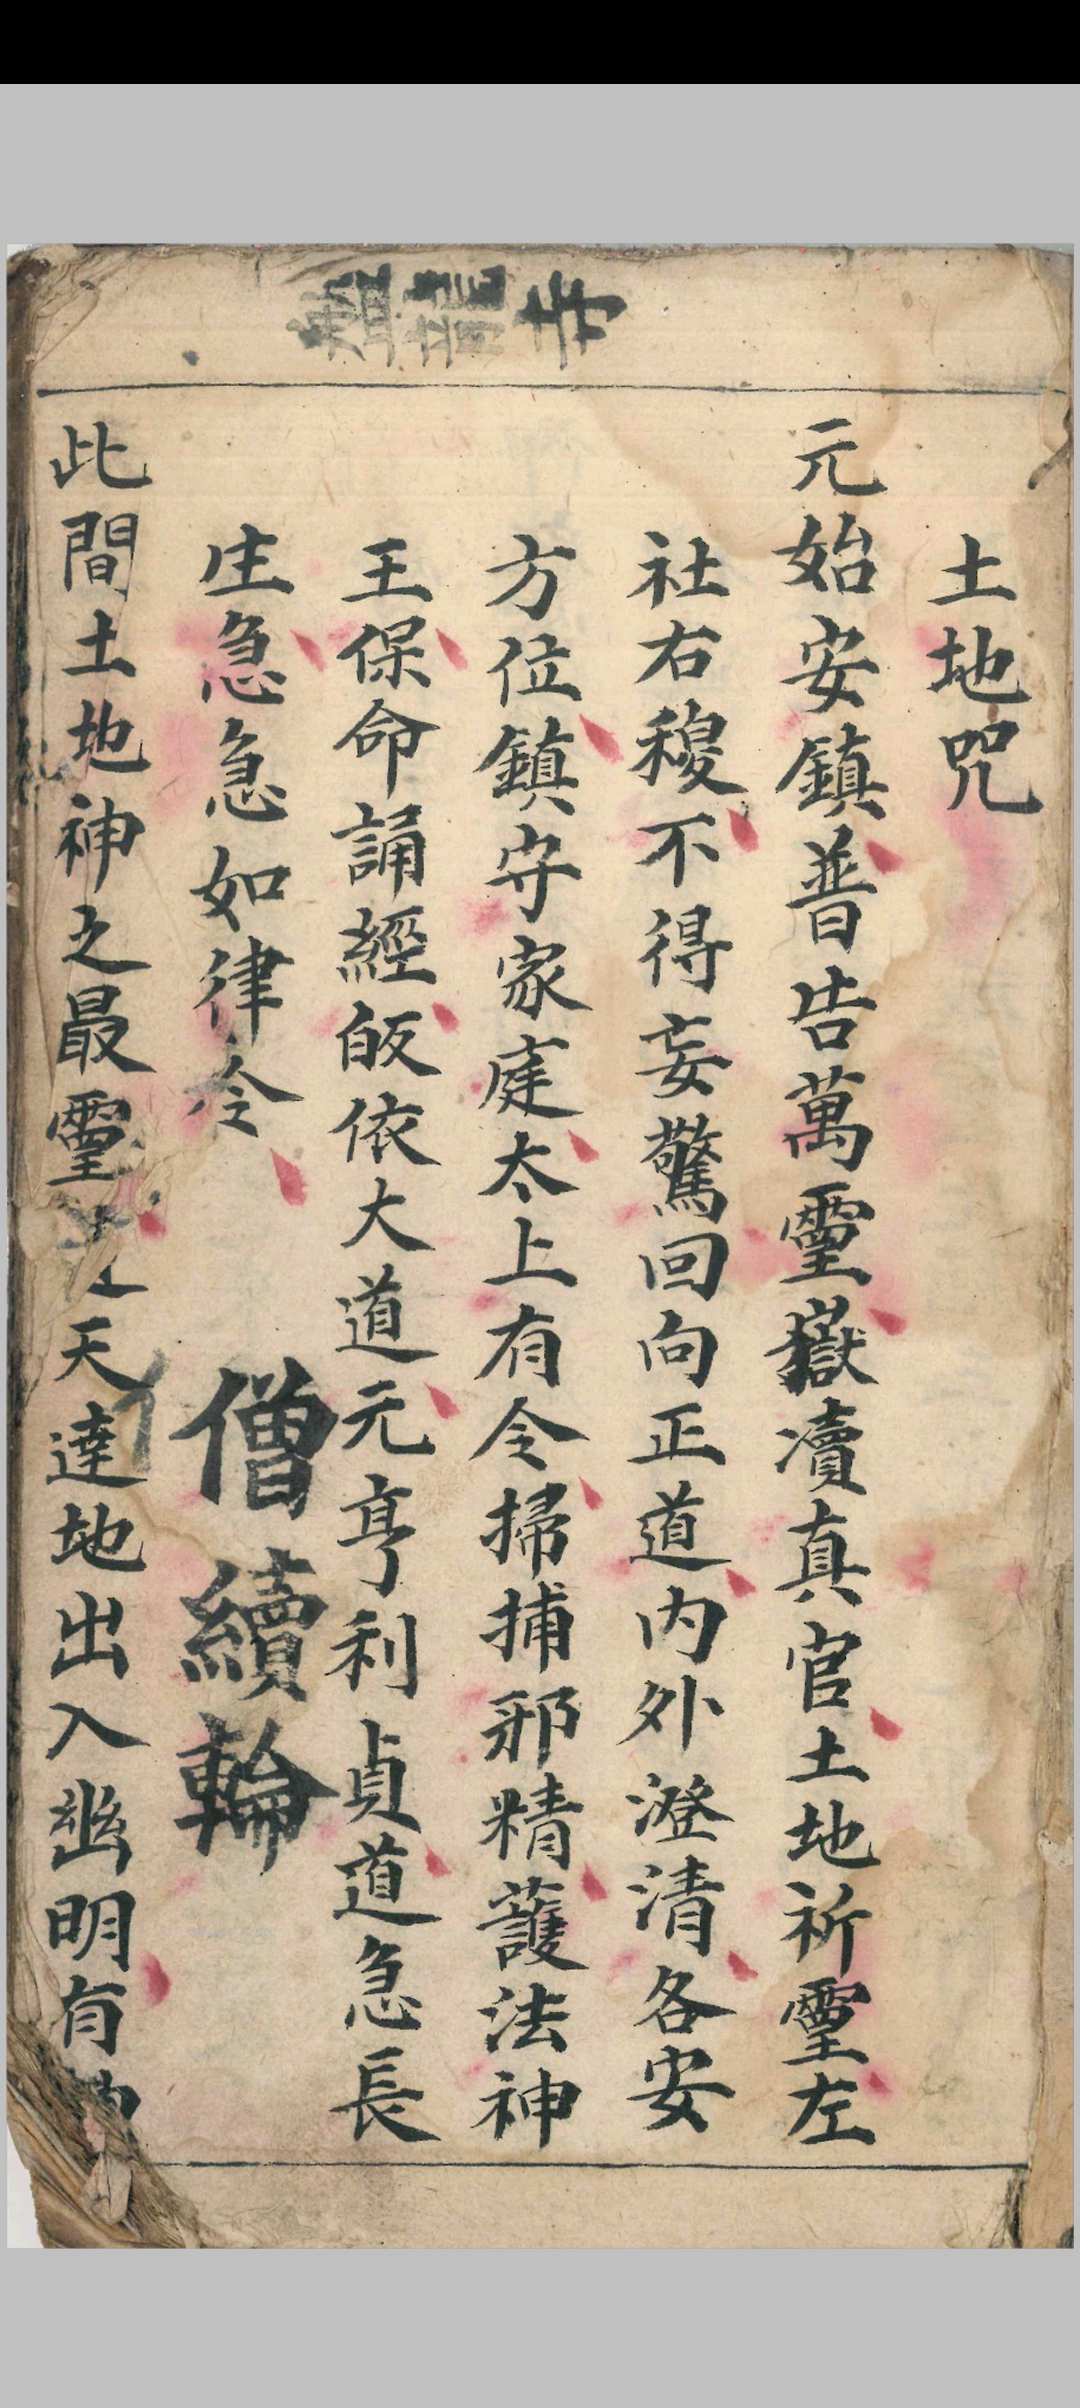 土地咒
元始安鎮普告萬𤫊嶽瀆真官土地祈𤫊左
社右稷不得妄驚回向正道內外澄清各安
方位鎮守家庭太上有令掃捕邪精護法神
王保命誦經皈依大道元亨利貞道急長
生急急如律令
僧續輪
此間土地神之最𤫊天達地出入幽明有